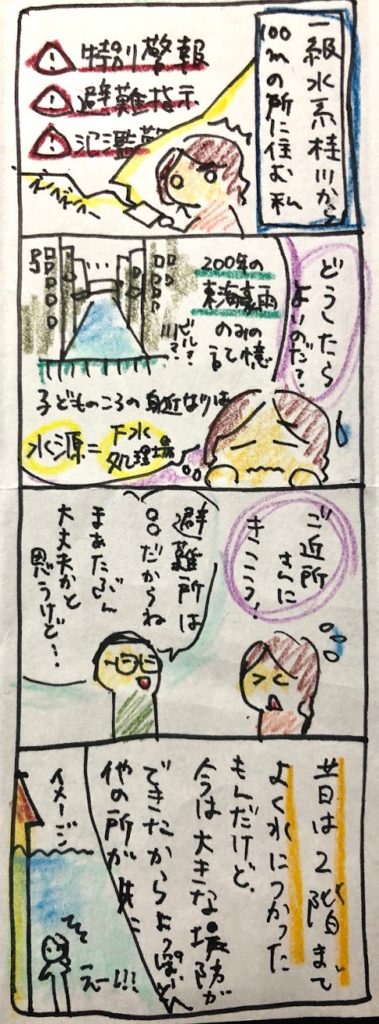 一級水系桂川から
100mの所に住む私
特別警報
避難指示
氾濫警
どうしたら
よいのだ？
200年の
東海豪雨
のみの
記憶
子どものころの身近なりは
水源＝下水
処理場
ご近所
さんに
きこう！
避難所は
〇〇だからね
まあたぶん
大丈夫かと
思うけど…
昔は2階まで
よく水につかった
もんだけど、
今は大きな堤防が
できたからよっぽど
他の所が先に
イメージ
えー!!!